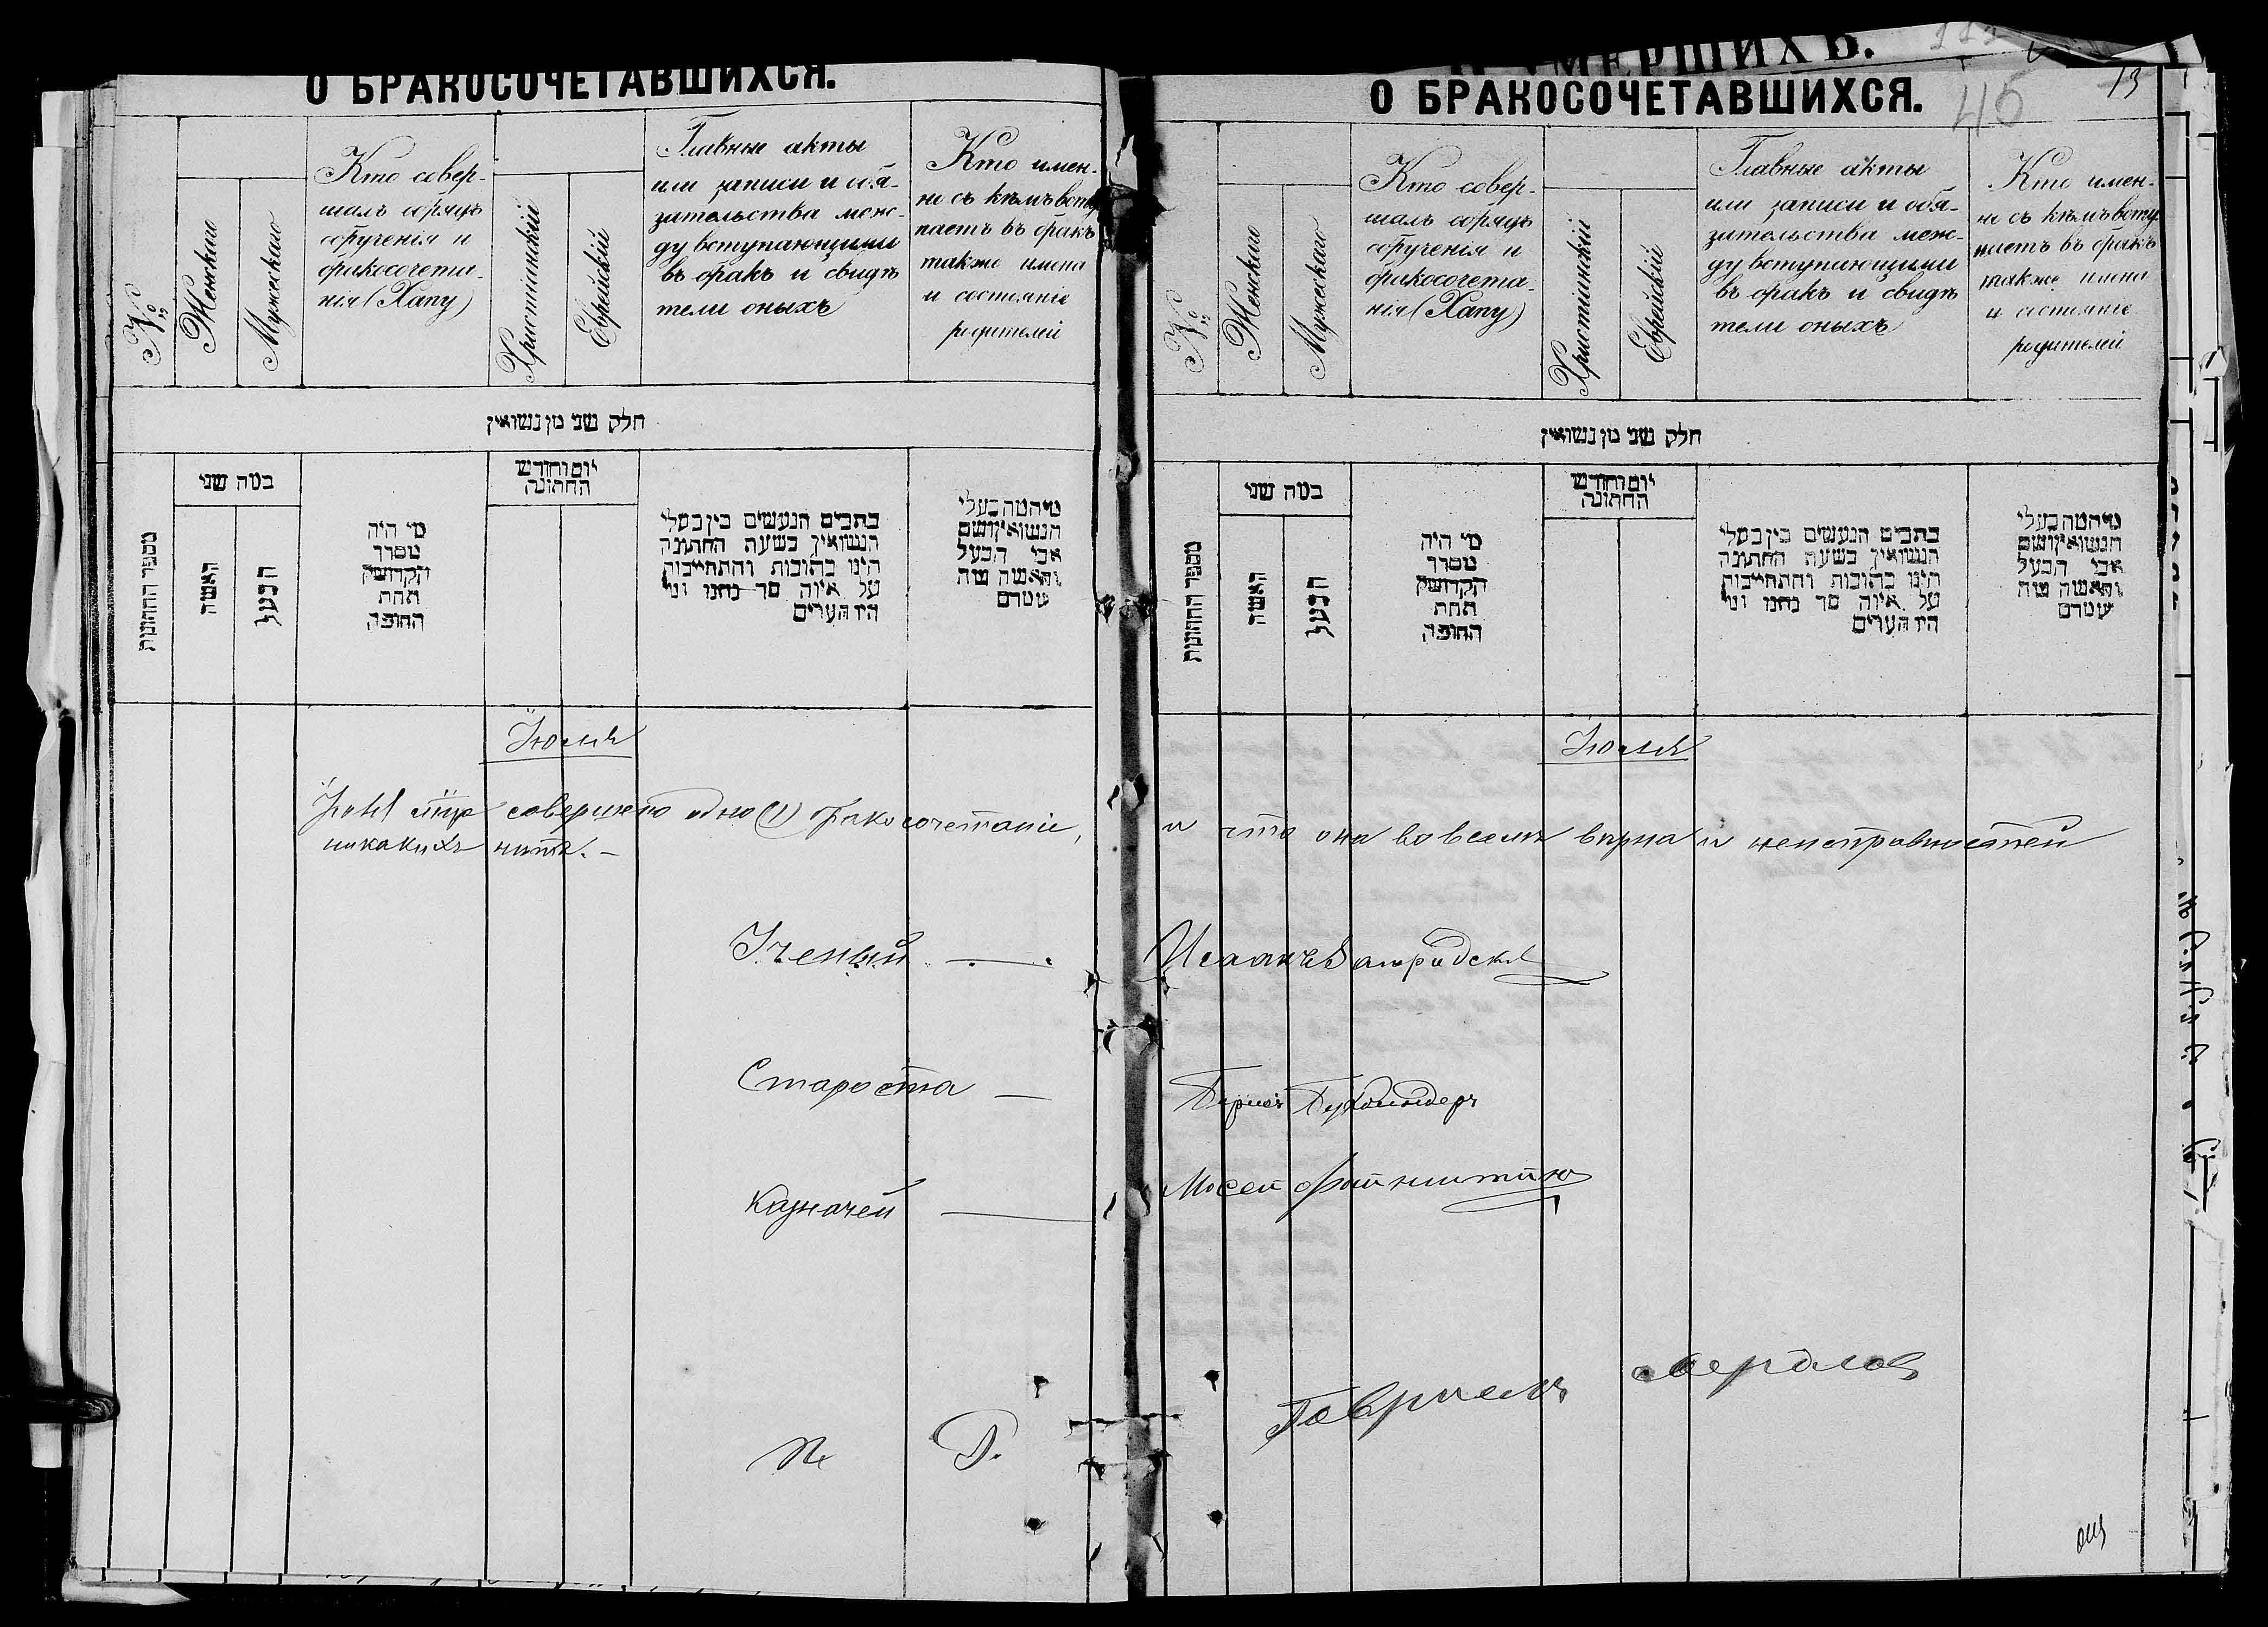 О БРАКОСОЧЕТАВШИХСЯ.
№
Женскаго
Мужескаго
Кто совер-
шалъ обрядъ
обрученія и
бракосочета-
нія (Хапу)
Христіанскій
Еврейскій
Главные акты
или записи и обя-
зательства меж-
ду вступающими
въ бракъ и свидѣ
тели оныхъ
Кто имен-
но съ кѣмъ всту
паетъ въ бракъ
также имена
и состояніе
родителей
חלק שני מן נשואין
מספר החתונות
כמה שני
האשה
הבעל
מי היה
מסדר
הקדושין
תחת
החופה
יום וחודש
החתונה
כתבים הנעשים בין בעלי
הנשואין בשעת החתונה
היינו כתובות והתחייבות
על איזה סך נתנו ומי
היו העדים
מי המה בעלי
הנשואין ושם
אבי הבעל
והאשה ומה
שמם
Іюля
совершено одно (1) бракосочетаніе,
никакихъ нѣтъ. —
Ученый —
Староста —
Казначей —
О БРАКОСОЧЕТАВШИХСЯ.
УМЕРШИХЪ.
45
13
№
Женскаго
Мужескаго
Кто совер-
шалъ обрядъ
обрученія и
бракосочета-
нія (Хапу)
Христіанскій
Еврейскій
Главные акты
или записи и обя-
зательства меж-
ду вступающими
въ бракъ и свидѣ
тели оныхъ
Кто имен-
но съ кѣмъ всту
паетъ въ бракъ
также имена
и состояніе
родителей
חלק שני מן נשואין
מספר החתונות
כמה שני
האשה
הבעל
מי היה
מסדר
הקדושין
תחת
החופה
יום וחודש
החתונה
כתבים הנעשים בין בעלי
הנשואין בשעת החתונה
היינו כתובות והתחייבות
על איזה סך נתנו ומי
היו העדים
מי המה בעלי
הנשואין ושם
אבי הבעל
והאשה ומה
שמם
Іюля
и что она во всемъ вѣрна и неисправностей
Исаакъ
Мосей
Гавріелъ